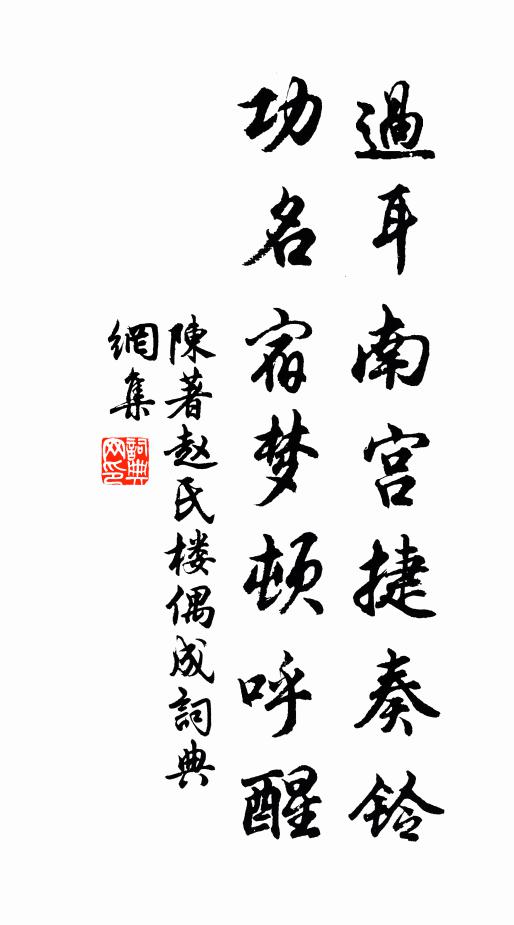 過耳南宫捷奏铃
功名宿梦顿呼醒
陳著赵氏楼偶成詞典
網集
詞典网印